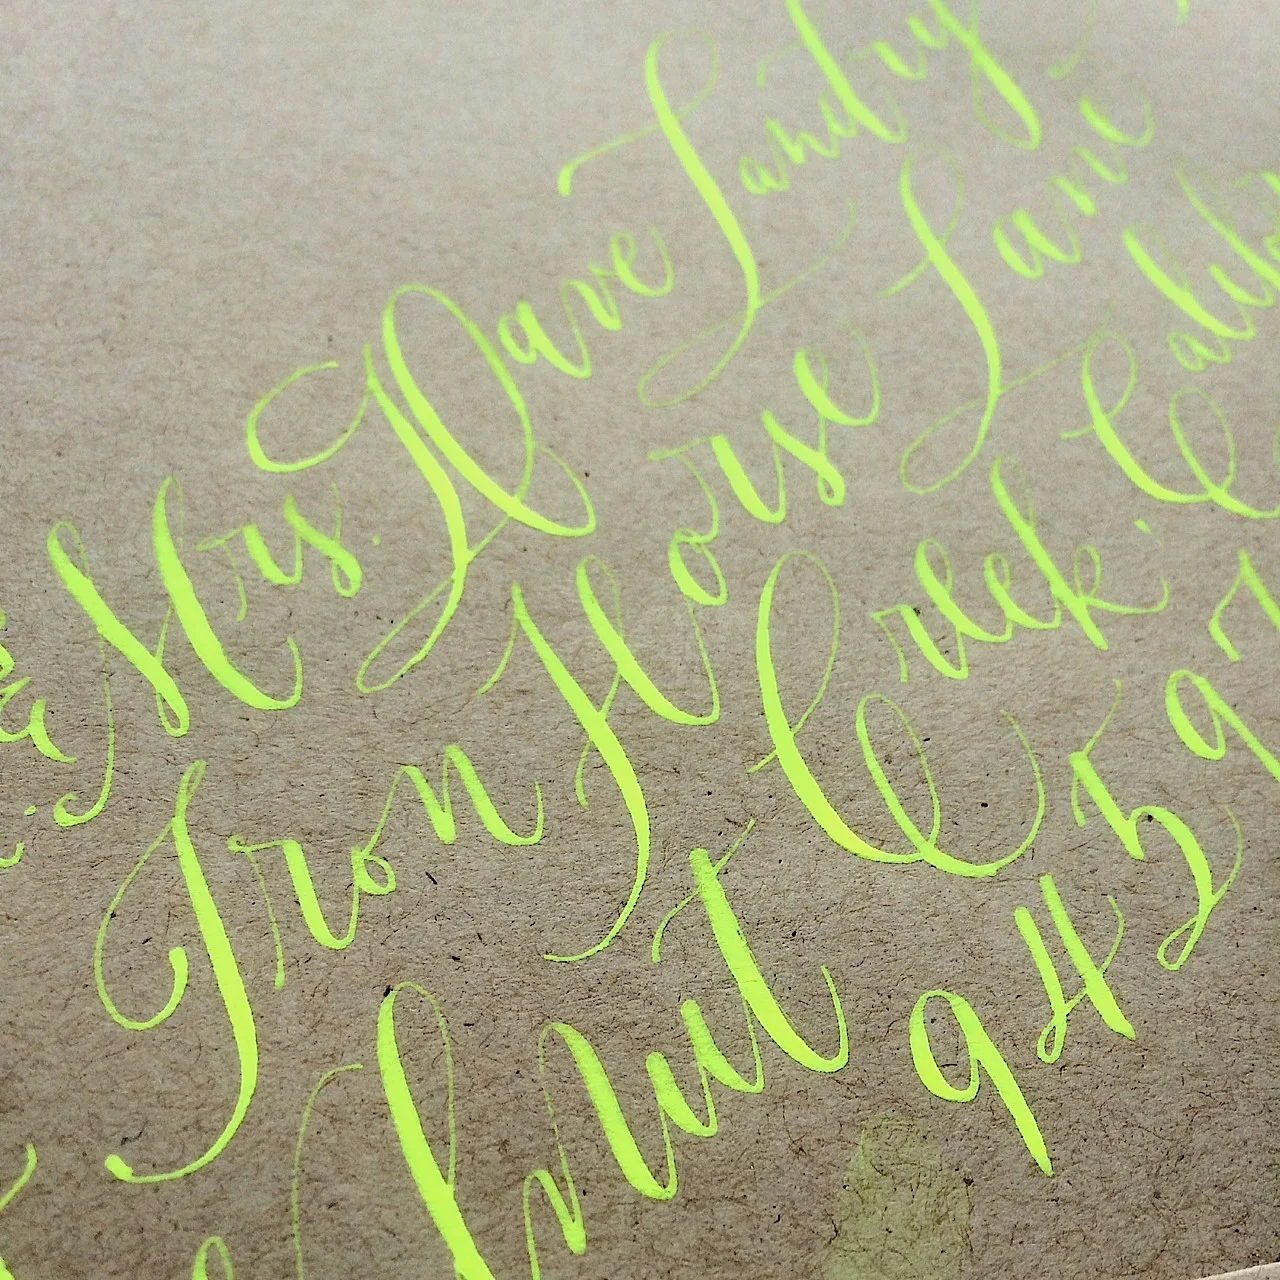 Mrs. Dave Landry
Iron Horse Lane
lnut Creek, Califo
94597